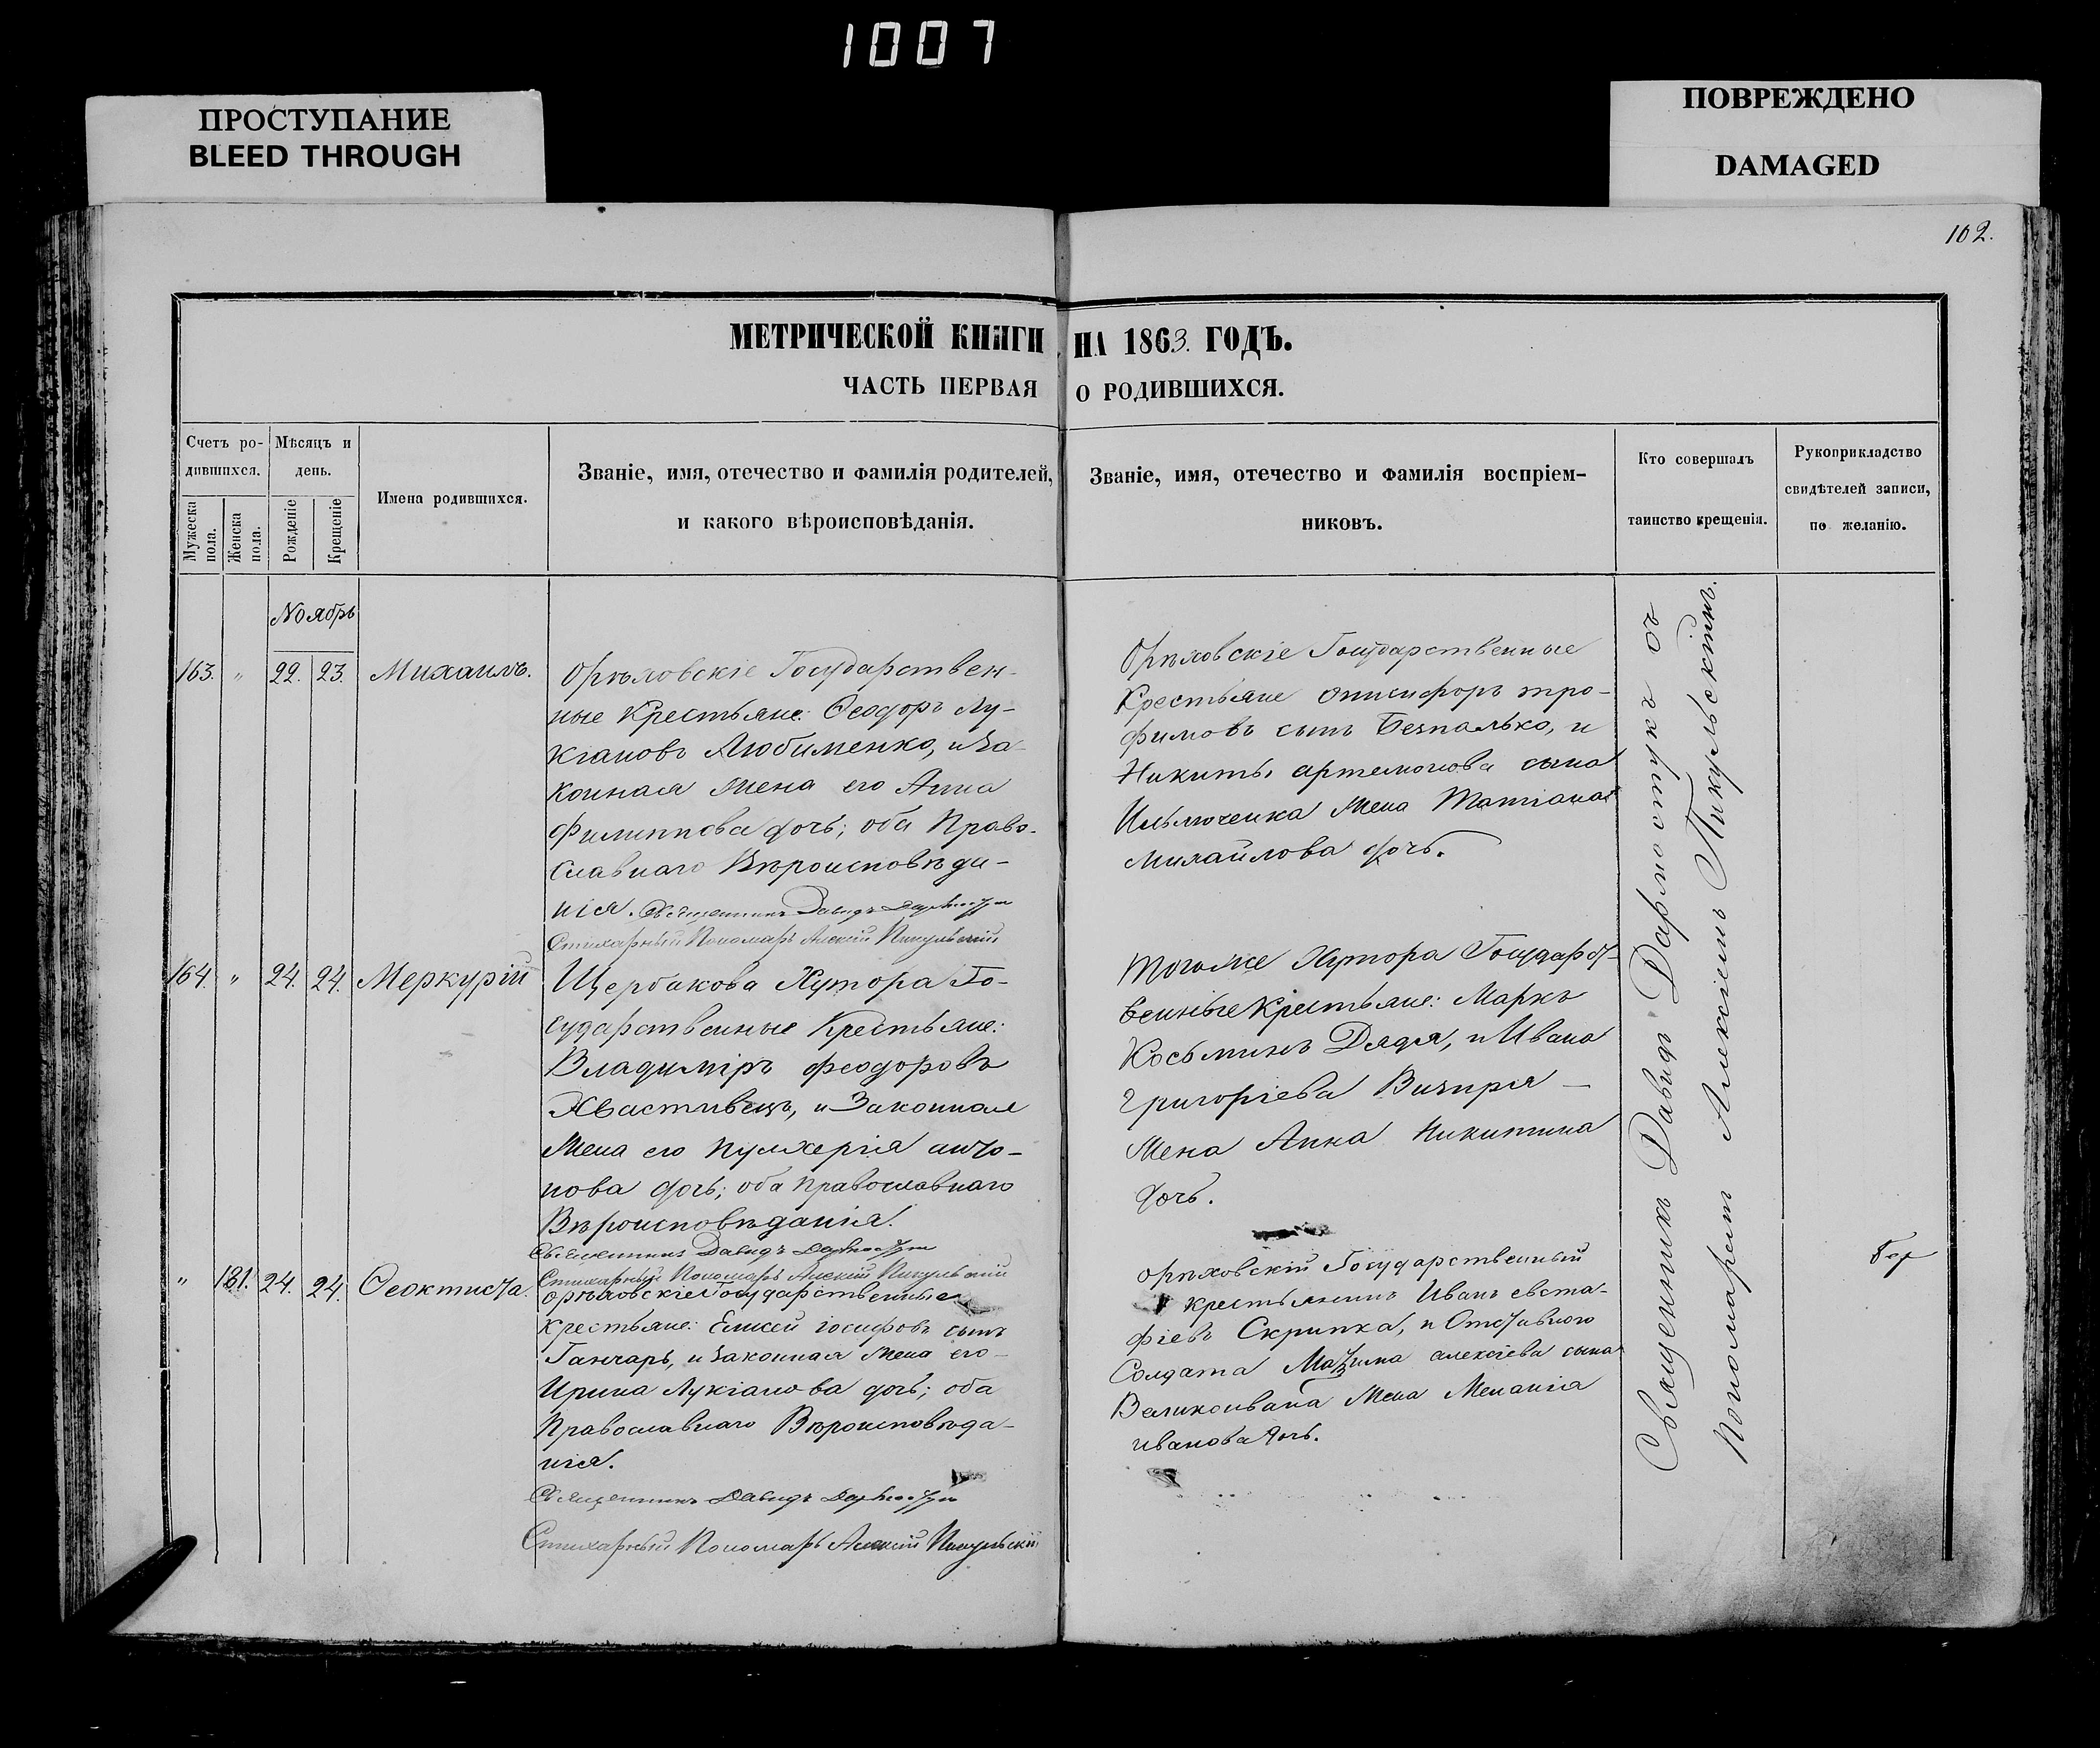 1007
ПРОСТУПАНИЕ
BLEED THROUGH
ПОВРЕЖДЕНО
DAMAGED
102.
МЕТРИЧЕСКОЙ КНИГИ НА 1863. ГОДЪ.
ЧАСТЬ ПЕРВАЯ О РОДИВШИХСЯ.
Счетъ ро-
дившихся.
Мужеска
пола.
Женска
пола.
Мѣсяцъ и
день.
Рожденіе
Крещеніе
Имена родившихся.
Званіе, имя, отечество и фамилія родителей,
и какого вѣроисповѣданія.
Званіе, имя, отечество и фамилія воспріем-
никовъ.
Кто совершалъ
таинство крещенія.
Рукоприкладство
свидѣтелей записи,
по желанію.
Ноябрь
163. " 22. 23. Михаилъ.
Орѣховскіе Государствен-
ные Крестьяне: Ѳеодоръ Лу-
кіановъ Любименко, и за-
конная жена его Анна
Филиппова дочь; оба Право-
славнаго Вѣроисповѣда-
нія. Священникъ Давидъ
Стихарный Пономарь Алексій Пикульскій
Орѣховскіе Государственные
Крестьяне Онисифоръ тро-
фимовъ сынъ Безпалько, и
Никиты артемонова сына
жена Татіана
Михайлова дочь.
164. " 24. 24. Меркурій
Щербакова Хутора Го-
сударственные Крестьяне:
Владиміръ феодоровъ
Хвастивецъ, и Законная
жена его Пулхерія анто-
нова дочь; оба православнаго
Вѣроисповѣданія.
Священникъ Давидъ
Стихарный Пономарь Алексій Пикульскій
Тогоже Хутора Государст-
венные Крестьяне: Маркъ
Косьминъ Дядя, и Ивана
григоріева Визиря
жена Анна Никитина
дочь.
" 131. 24. 24. Ѳеоктиста.
орѣховскіе Государственные
Крестьяне: Елисей іосифовъ сынъ
Ганчаръ, и законная жена его
Ирина Лукіанова дочь; оба
Православнаго Вѣроисповѣда-
нія.
Священникъ Давидъ
Стихарный Пономарь Алексій Пикульскій
орѣховскій Государственный
крестьянинъ Иванъ евста-
фіевъ Скрипка, и Отставного
Солдата алексіева сына
жена Меланія
иванова дочь.
Священникъ Давидъ съ
Пономаремъ Алексіемъ Пикульскимъ.